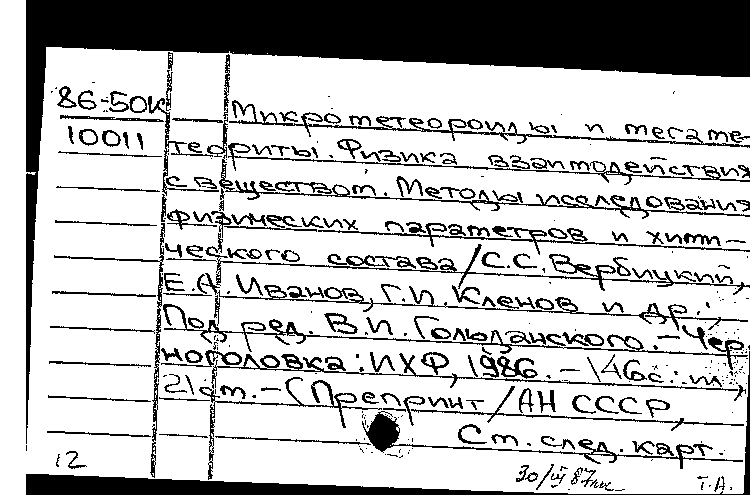 86-50К
10011
Микрометеороиды и мегаме-
теориты. Физика взаимодействия
с веществом. Методы исследования
физических параметров и хими-
ческого состава/С.С. Вербицкий,
Е.А. Иванов, Г.И. Кленов и др.;
Под ред. В.И. Гольданского. – Чер
ноголовка: ИХФ, 1986. – 146с.: ил.,
21см. – (Препринт/АН СССР,
См. след. карт.
12
Т.А.